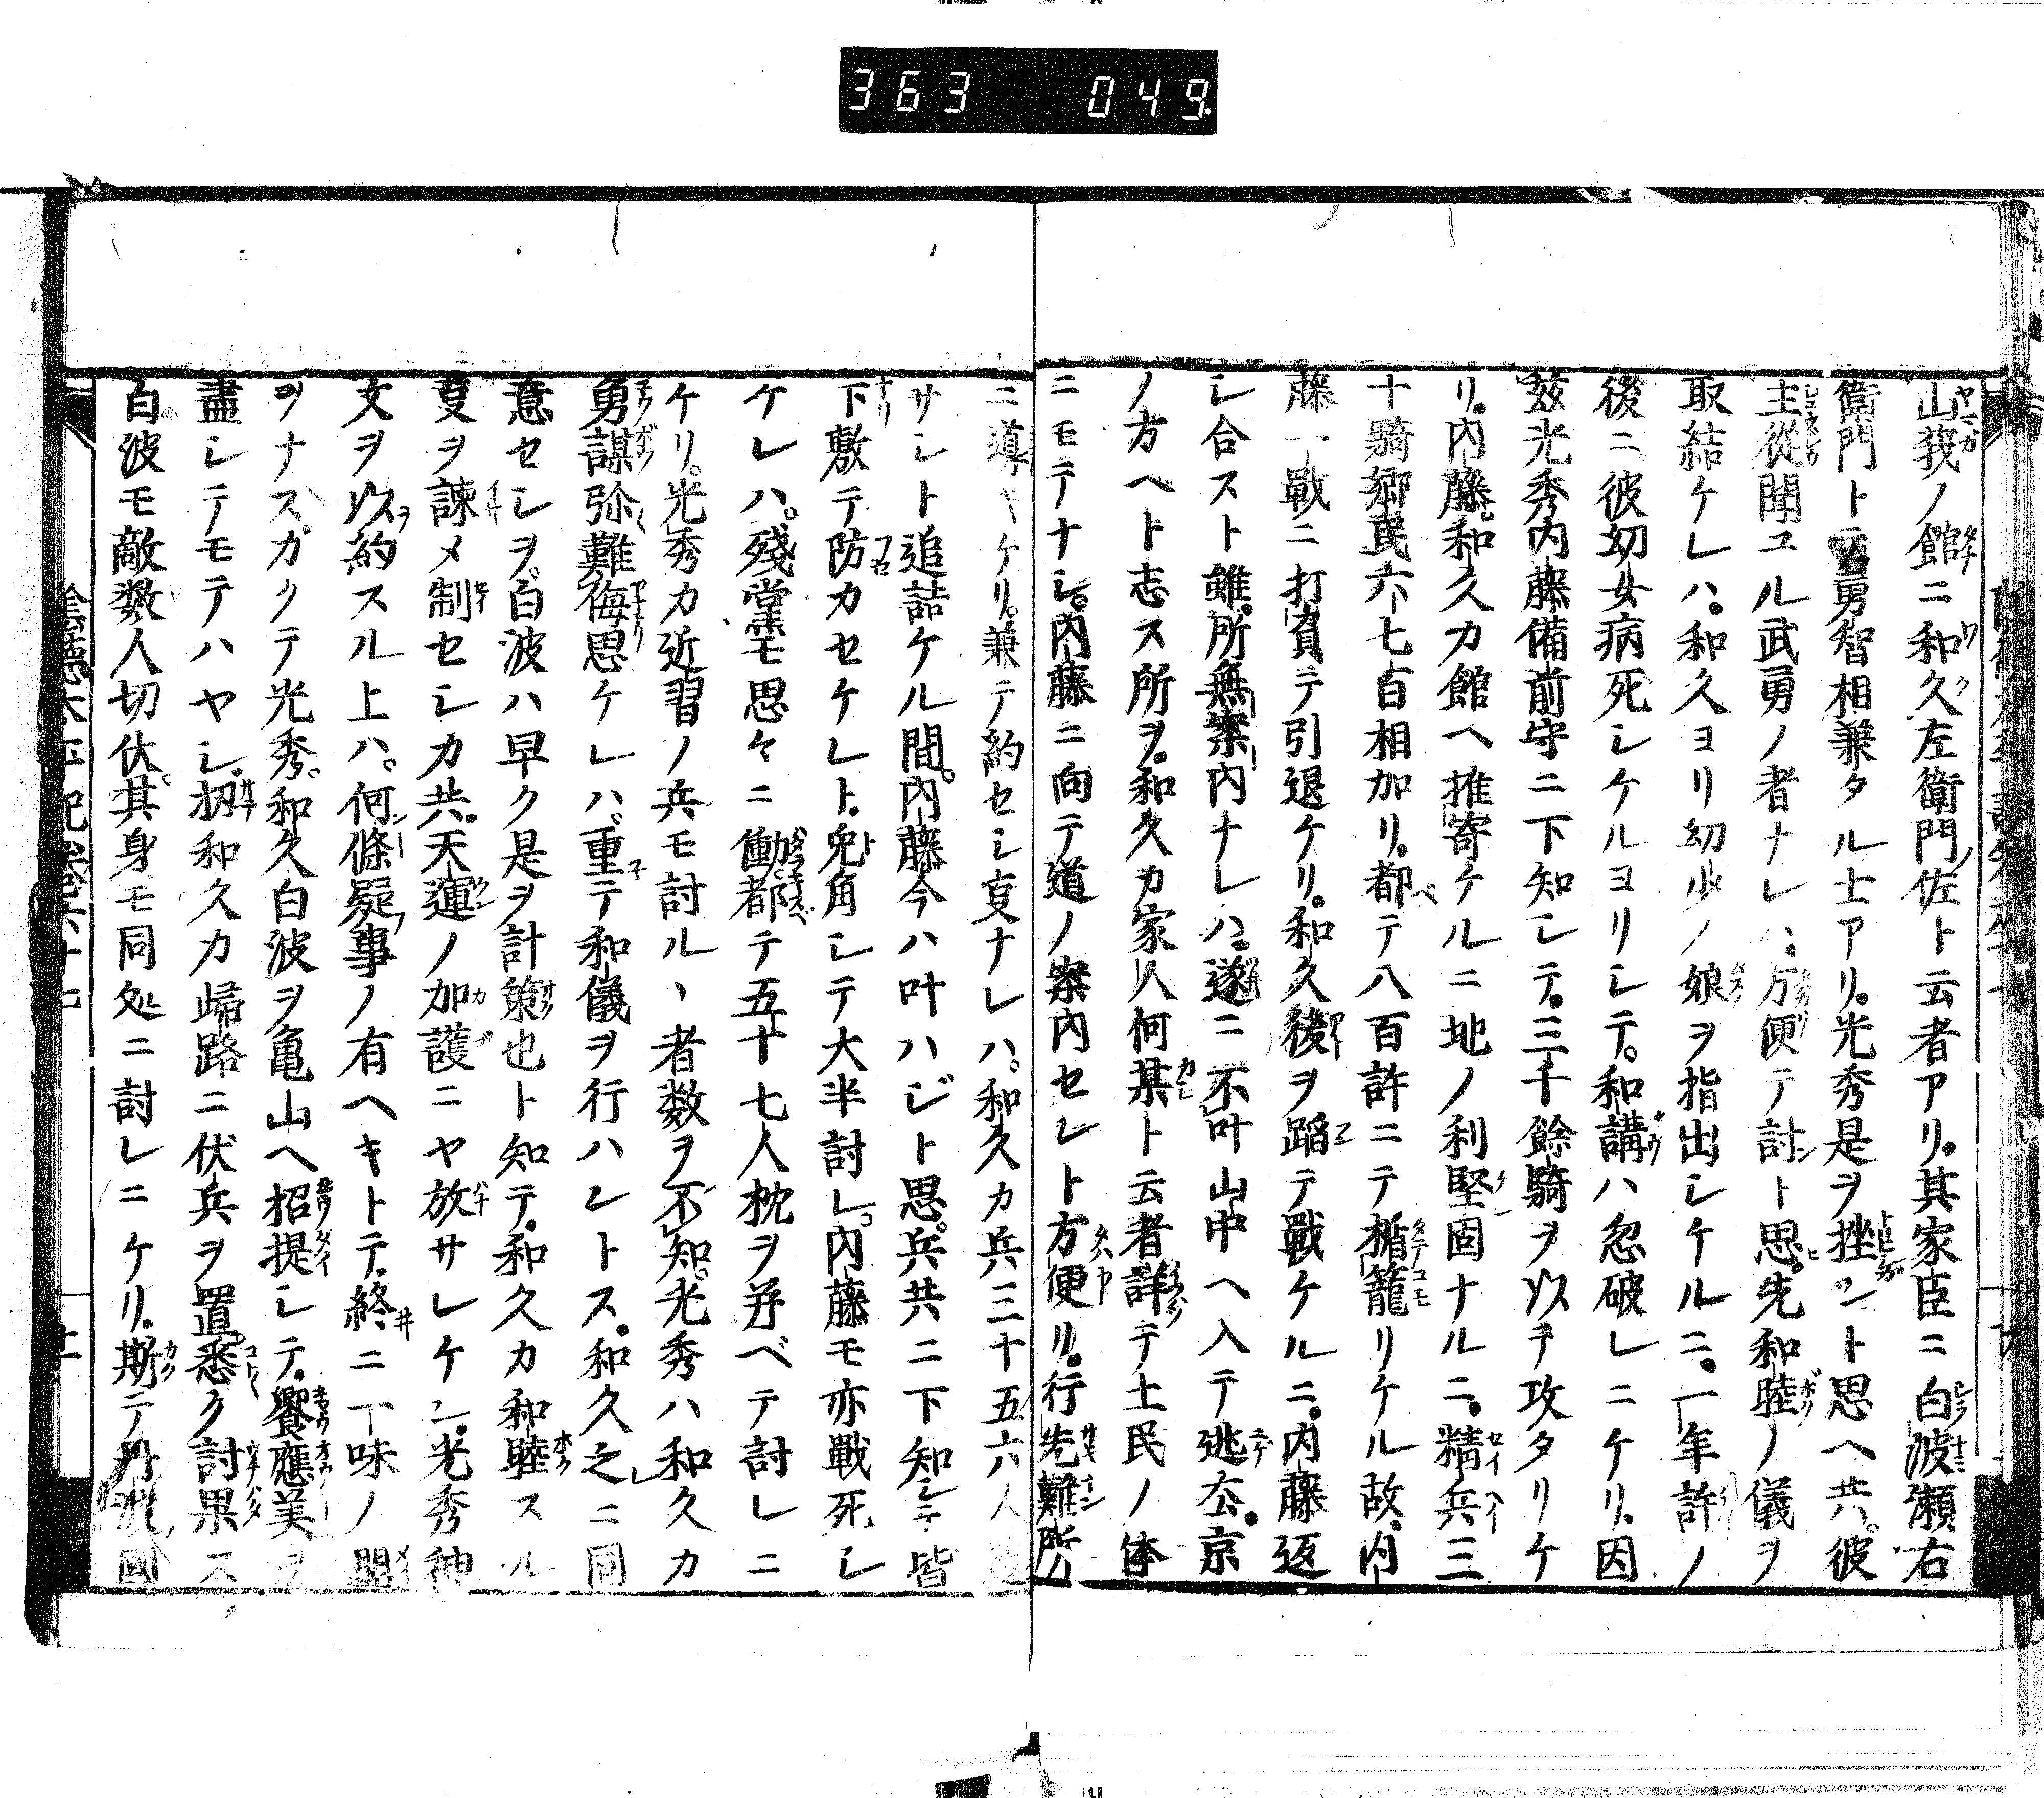 363 049
山我ノ館ニ和久左衛門佐ト云者アリ。其家臣ニ白波瀬右
衛門トテ勇智相兼タル士アリ。光秀是ヲ挫ント思ヘ共。彼
主從聞ユル武勇ノ者ナレハ。方便テ討ト思ヒ。先和睦ノ儀ヲ
取結ケレハ。和久ヨリ幼少ノ娘ヲ指出シケルニ。一年許ノ
後ニ彼幼女病死シケルヨリシテ。和講ハ忽破レニケリ。因
茲光秀内藤備前守ニ下知シテ。三千餘騎ヲ以テ攻タリケ
リ。内藤。和久カ館ヘ推寄ケルニ地ノ利堅固ナルニ。精兵三
十騎郷民六七百相加リ。都テ八百許ニテ楯籠リケル故。内
藤一戰ニ打負テ引退ケリ。和久後ヲ蹈テ戰ケルニ。内藤返
シ合スト雖。所無案内ナレハ。遂ニ不叶山中ヘ入テ逃厺。京
ノ方ヘト志ス所ヲ。和久カ家人何某ト云者詳テ土民ノ体
ニモテナシ。内藤ニ向テ道ノ案内セレト方便リ。行先難所
ニ導キケリ。兼テ約セシ叓ナレハ。和久カ兵三十五六人
サレト追詰ケル間。内藤今ハ叶ハジト思。兵共ニ下知シテ皆
下敷テ防カセケレト。兎角シテ大半討レ。内藤モ亦戰死シ
ケレハ。殘黨モ思々ニ働。都テ五十七人枕ヲ並ベテ討レニ
ケリ。光秀カ近習ノ兵モ討ルヽ者数ヲ不知。光秀ハ和久カ
勇謀弥難侮思ケレハ。重テ和儀ヲ行ハレトス。和久之ニ同
意セシヲ。白波ハ早ク是ヲ計策也ト知テ。和久カ和睦スル
叓ヲ諫メ制セシカ共。天運ノ加護ニヤ放サレケン。光秀神
文ヲ以約スル上ハ。何條疑事ノ有ヘキトテ。終ニ一味ノ盟
ヲナス。カクテ光秀。和久白波ヲ亀山ヘ招提シテ。饗應美ヲ
盡シテモテハヤシ。扨和久カ歸路ニ伏兵ヲ置。悉ク討果ス
白波モ敵数人切伏。其身モ同処ニ討レニケリ。斯テ丹波國
陰德太平記卷六十七